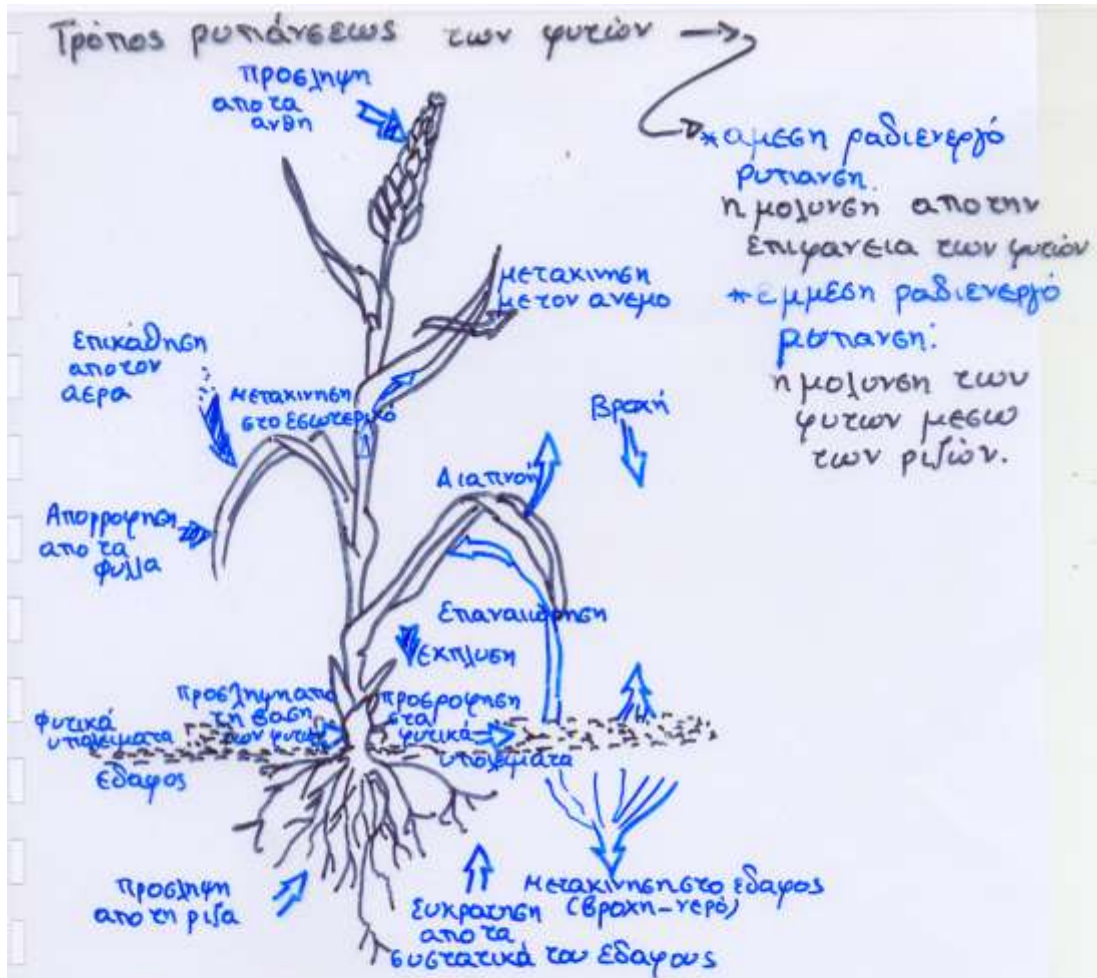 Τρόπος ρυπάνσεως των φυτών
προσληψη
απο τα
ανθη
*αμεση ραδιενεργό
ρυπανση.
η μολυνση απο την
επιφανεια των φυτών
*εμμεση ραδιενεργό
ρυπανση:
η μολυνση των
φυτων μεσω
των ριζών.
μετακινηση
με τον ανεμο
επικάθηση
απο τον
αερα
μετακινηση
στο εσωτερικό
Βροχή
Διαπνοή
Απορροφηση
απο τα
φυλλα
Επαναιώρηση
εκπλυση
προσληψη απο
τη βαση
των φυτών
προσροφηση
στα
φυτικά
υπολείματα
φυτικά
υπολείματα
εδαφος
προσληψη
απο τη ριζα
Συκρατηση
απο τα
συστατικά του εδαφους
Μετακινηση στο εδαφος
(βροχη-νερό)